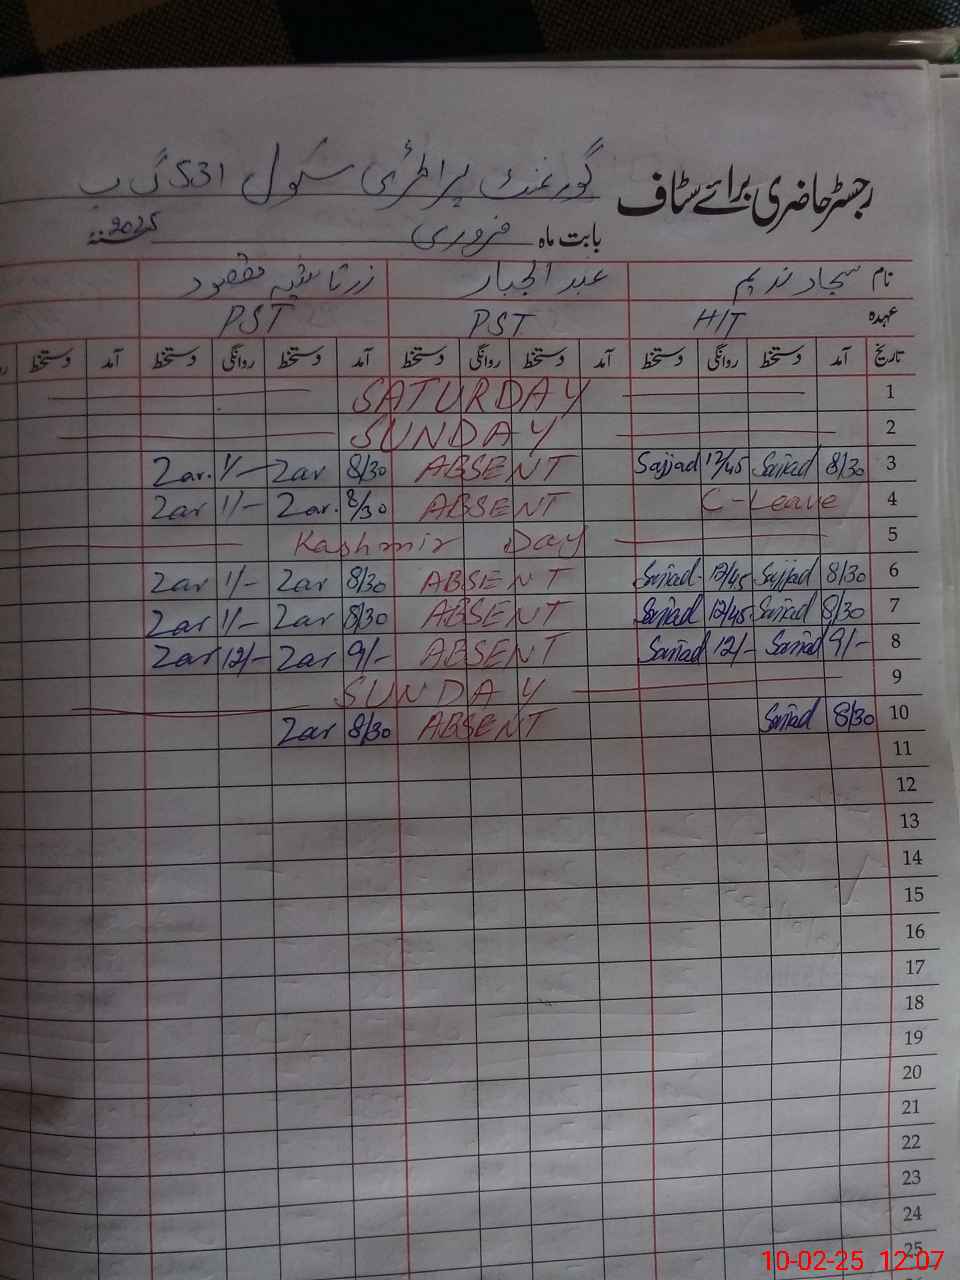 رجسٹر حاضری برائے سٹاف گورنمنٹ پرائمری سکول 531 گ ب
بابت ماہ فروری سنہ 2025
نام سجاد ندیم عبدالجبار زرتاشیہ مقصود
عہدہ HIT PST PST
تاریخ آمد دستخط روانگی دستخط آمد دستخط روانگی دستخط آمد دستخط روانگی دستخط آمد دستخط
1 SATURDAY
2 SUNDAY
3 8/30 Sajjad 12/45 Sajjad ABSENT 8/30 Zar 1/- Zar.
4 C-Leave ABSENT 8/30 Zar. 1/- Zar
5 Kashmir Day
6 8/30 Sajjad 12/45 Sajjad ABSENT 8/30 Zar 1/- Zar
7 8/30 Sajjad 12/45 Sajjad ABSENT 8/30 Zar 1/- Zar
8 9/- Sajjad 12/- Sajjad ABSENT 9/- Zar 12/- Zar
9 SUNDAY
10 8/30 Sajjad ABSENT 8/30 Zar
11
12
13
14
15
16
17
18
19
20
21
22
23
24
25
10-02-25 12:07